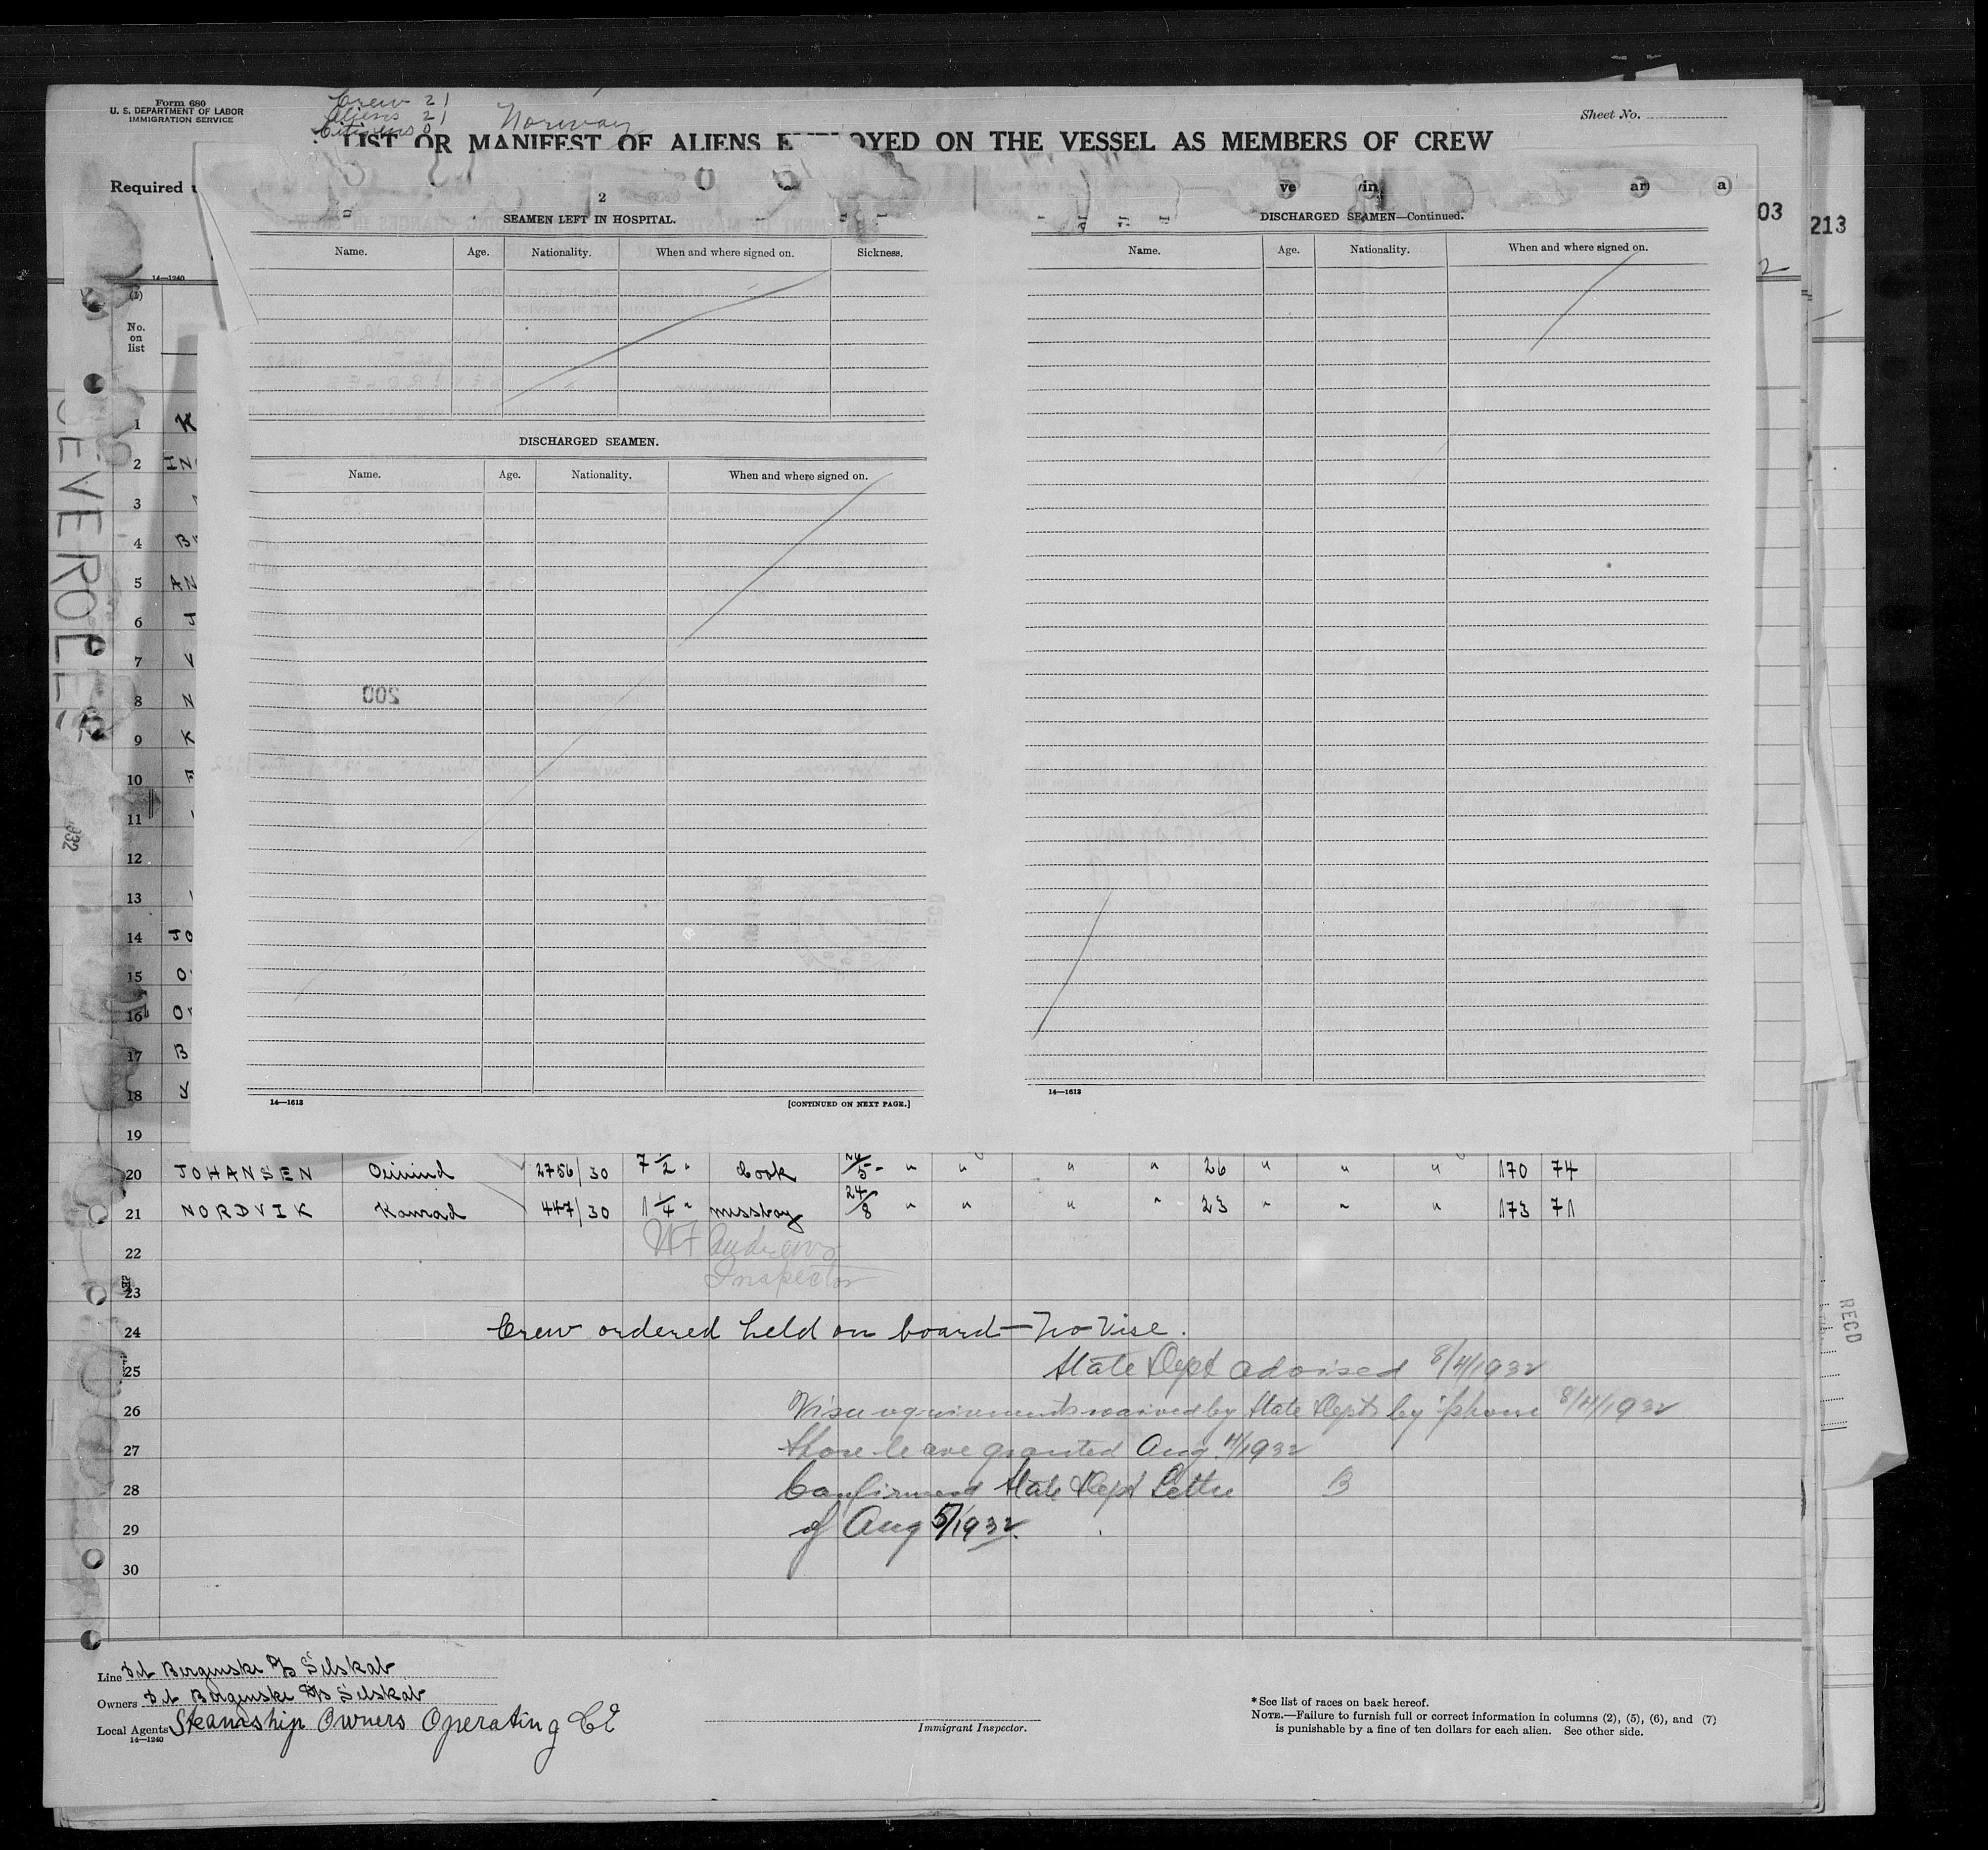 Form 680
U. S. DEPARTMENT OF LABOR
IMMIGRATION SERVICE
Crew 21
Aliens 21
Citizens 0
Norway
Sheet No.
LIST OR MANIFEST OF ALIENS E OYED ON THE VESSEL AS MEMBERS OF CREW
Required
ve
in
ar
a
03
213
2
2
SEAMEN LEFT IN HOSPITAL.
Name. Age. Nationality. When and where signed on. Sickness.
DISCHARGED SEAMEN.
Name. Age. Nationality. When and where signed on.
200
14—1613
[CONTINUED ON NEXT PAGE.]
DISCHARGED SEAMEN—Continued.
Name. Age. Nationality. When and where signed on.
14—1613
14—1240
(1)
No.
on
list
1 K
2 IN
3
4 B
5 AN
6 J
7 V
8 N
9 K
10
11
12
13
14 JO
15 O
16 O
17 B
18
19
20 JOHANSEN Oivind 2756/30 7 1/2 " Cook 26/5 - " " " " 26 " " " 170 74
21 NORDVIK Konrad 447/30 1 1/4 " messboy 24/8 " " " " 23 " " " 173 71
22 Andrews
23 Inspector
24 Crew ordered held on board — No Vise.
25 State Dept advised 8/4/1932
26 Visa requirements waived by State Dept by 'phone 8/4/1932
27 Shore leave granted Aug. 4/1932
28 Confirmed State Dept Letter B
29 of Aug 5/1932.
30
Line Det Bergenske D/S Selskab
Owners Det Bergenske D/S Selskab
Local Agents Steamship Owners Operating Co
14—1240
Immigrant Inspector.
* See list of races on back hereof.
NOTE.—Failure to furnish full or correct information in columns (2), (5), (6), and (7)
is punishable by a fine of ten dollars for each alien. See other side.
RECD